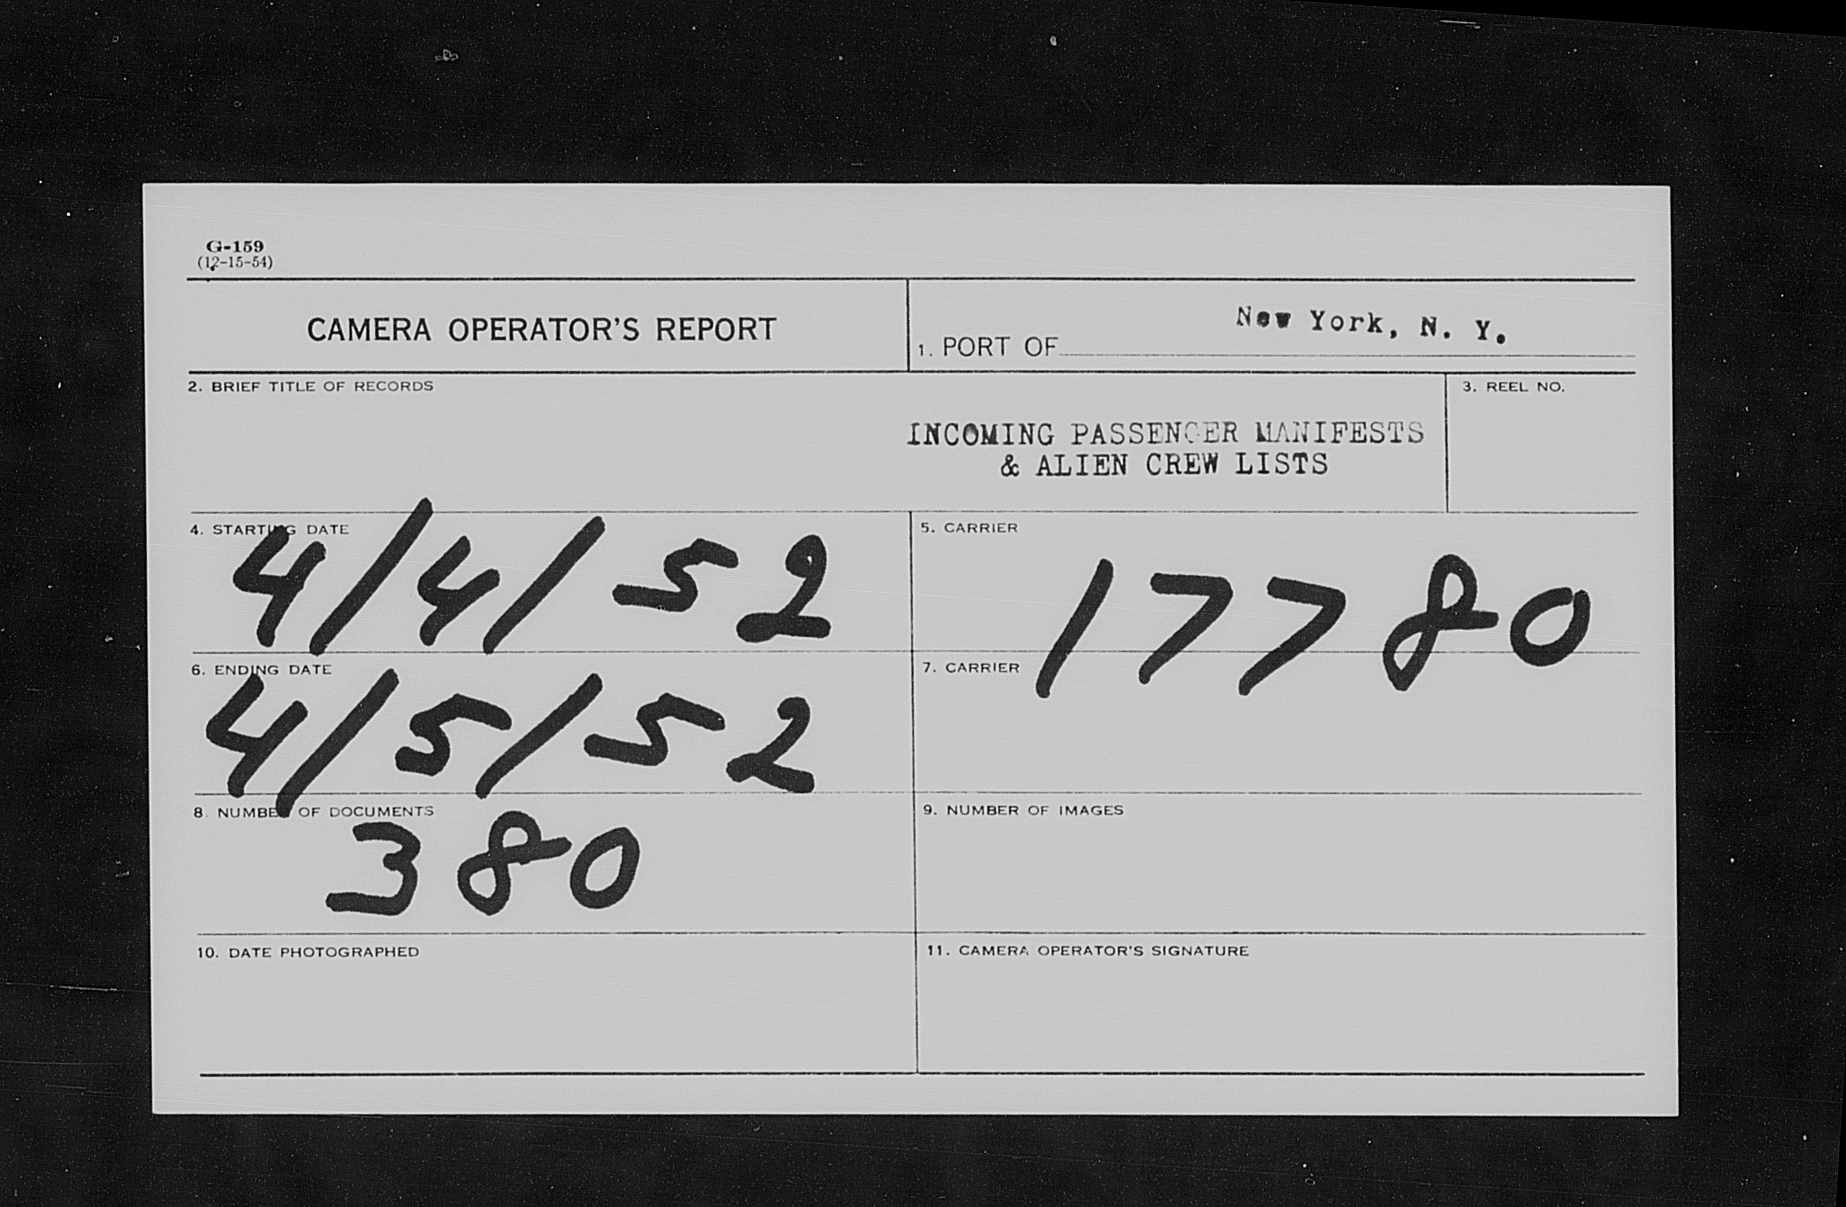 G-159
(12-15-54)
CAMERA OPERATOR'S REPORT
1. PORT OF New York, N. Y.
2. BRIEF TITLE OF RECORDS
INCOMING PASSENGER MANIFESTS
& ALIEN CREW LISTS
3. REEL NO.
4. STARTING DATE
4/4/52
5. CARRIER
17780
6. ENDING DATE
4/5/52
7. CARRIER
8. NUMBER OF DOCUMENTS
380
9. NUMBER OF IMAGES
10. DATE PHOTOGRAPHED
11. CAMERA OPERATOR'S SIGNATURE